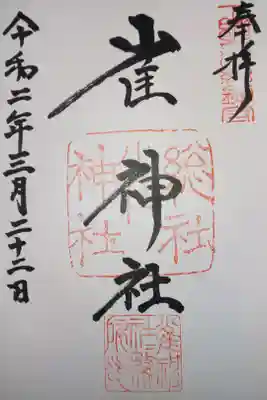 奉拝
雀神社
総社
神社
令和二年三月二十二日